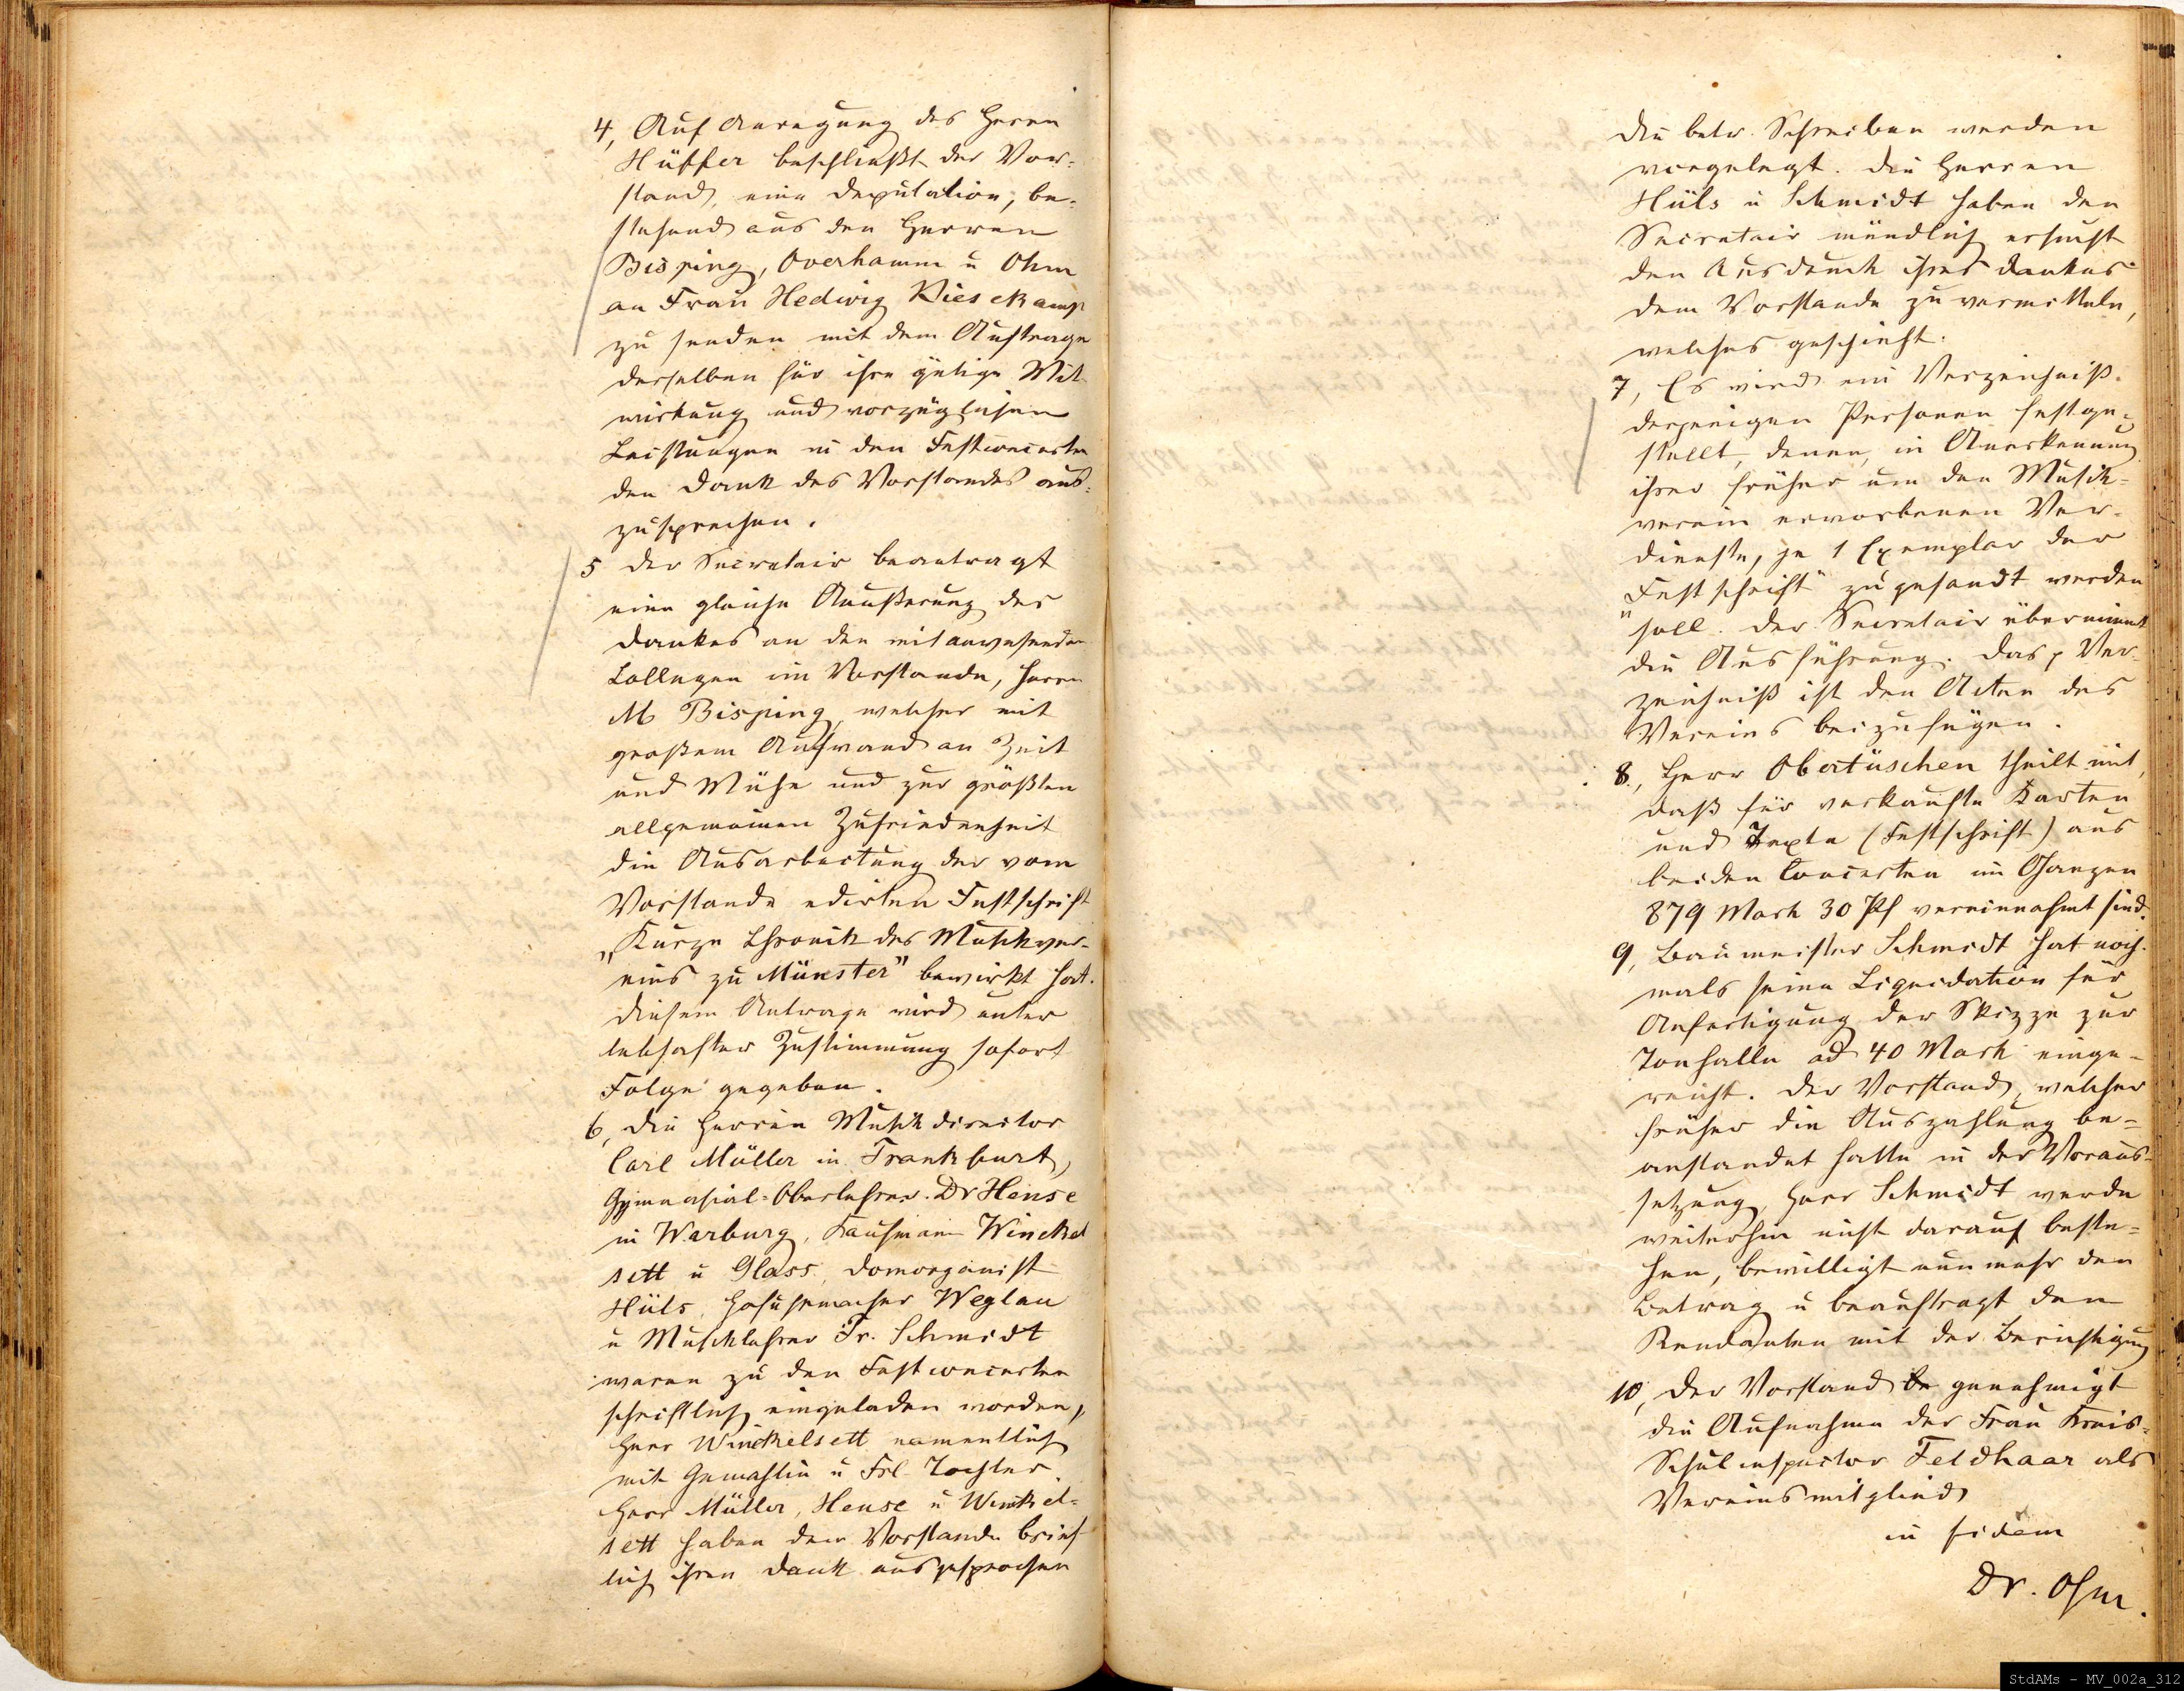 4, Auf Anregung des Herrn
Hüffer beschließt der Vor-
stand, eine Deputation, be-
stehend aus den Herren
Bisping, Overhamm u Ohm
an Frau Hedwig Kiesekamp
zu senden mit dem Auftrage
derselben für ihre gütige Mit-
wirkung und vorzüglichen
Leistungen in den Festconcerten
den Dank des Vorstandes aus-
zusprechen.
5 Der Secretair beantragt
eine gleiche Äußerung des
Dankes an den mitanwesenden
Collegen im Vorstande, Herrn
M Bisping, welcher mit
großem Aufwand an Zeit
und Mühe und zur größten
allgemeinen Zufriedenheit
die Ausarbeitung der vom
Vorstande edirten Festschrift
„Kurze Chronik des Musikver-
eins zu Münster" bewirkt hat.
Diesem Antrage wird unter
lebhafter Zustimmung sofort
Folge gegeben.
6, Die Herren Musikdirector
Carl Müller in Frankfurt,
Gymnasial-Oberlehrer Dr Hense
in Warburg, Kaufmann Winckel
sett u Glass, Domorganist
Hüls, Hofuhrmacher Weglau
u Musiklehrer Fr. Schmidt
waren zu den Festconcerten
schriftlich eingeladen worden,
Herr Winckelsett namentlich
mit Gemahlin u Frl. Tochter.
Herr Müller, Hense u Winckel-
sett haben dem Vorstande brief-
lich ihren Dank ausgesprochen
Die betr. Schreiben werden
vorgelegt. Die Herren
Hüls u Schmidt haben den
Secretair mündlich ersucht
den Ausdruck ihres Dankes
dem Vorstande zu vermitteln,
welches geschieht.
7, Es wird ein Verzeichniß
derjenigen Personen festge-
stellt, denen, in Anerkennung
ihrer früher um den Musik-
verein erworbenen Ver-
dienste, je 1 Exemplar der
„Festschrift" zugesandt werden
soll. Der Secretair übernimmt
die Ausführung. Das Ver-
zeichniß ist den Acten des
Vereins beizufügen.
8., Herr Obertüschen theilt mit,
daß für verkaufte Karten
und Texte (Festschrift) aus
beiden Concerten im Ganzen
879 Mark 30 Pf vereinnahmt sind.
9, Baumeister Schmidt hat noch-
mals seine Liquidation für
Anfertigung der Skizze zur
Tonhalle ad 40 Mark einge-
reicht. Der Vorstand, welcher
früher die Auszahlung be-
anstandet hatte in der Voraus-
setzung, Herr Schmidt werde
weiterhin nicht darauf beste-
hen, bewilligt nunmehr den
Betrag u beauftragt den
Rendanten mit der Berichtigung
10, Der Vorstand be genehmigt
die Aufnahme der Frau Kreis-
Schulinspector Feldhaar als
Vereinsmitglied
in fidem
Dr. Ohm.
StdAMs - MV_002a_312